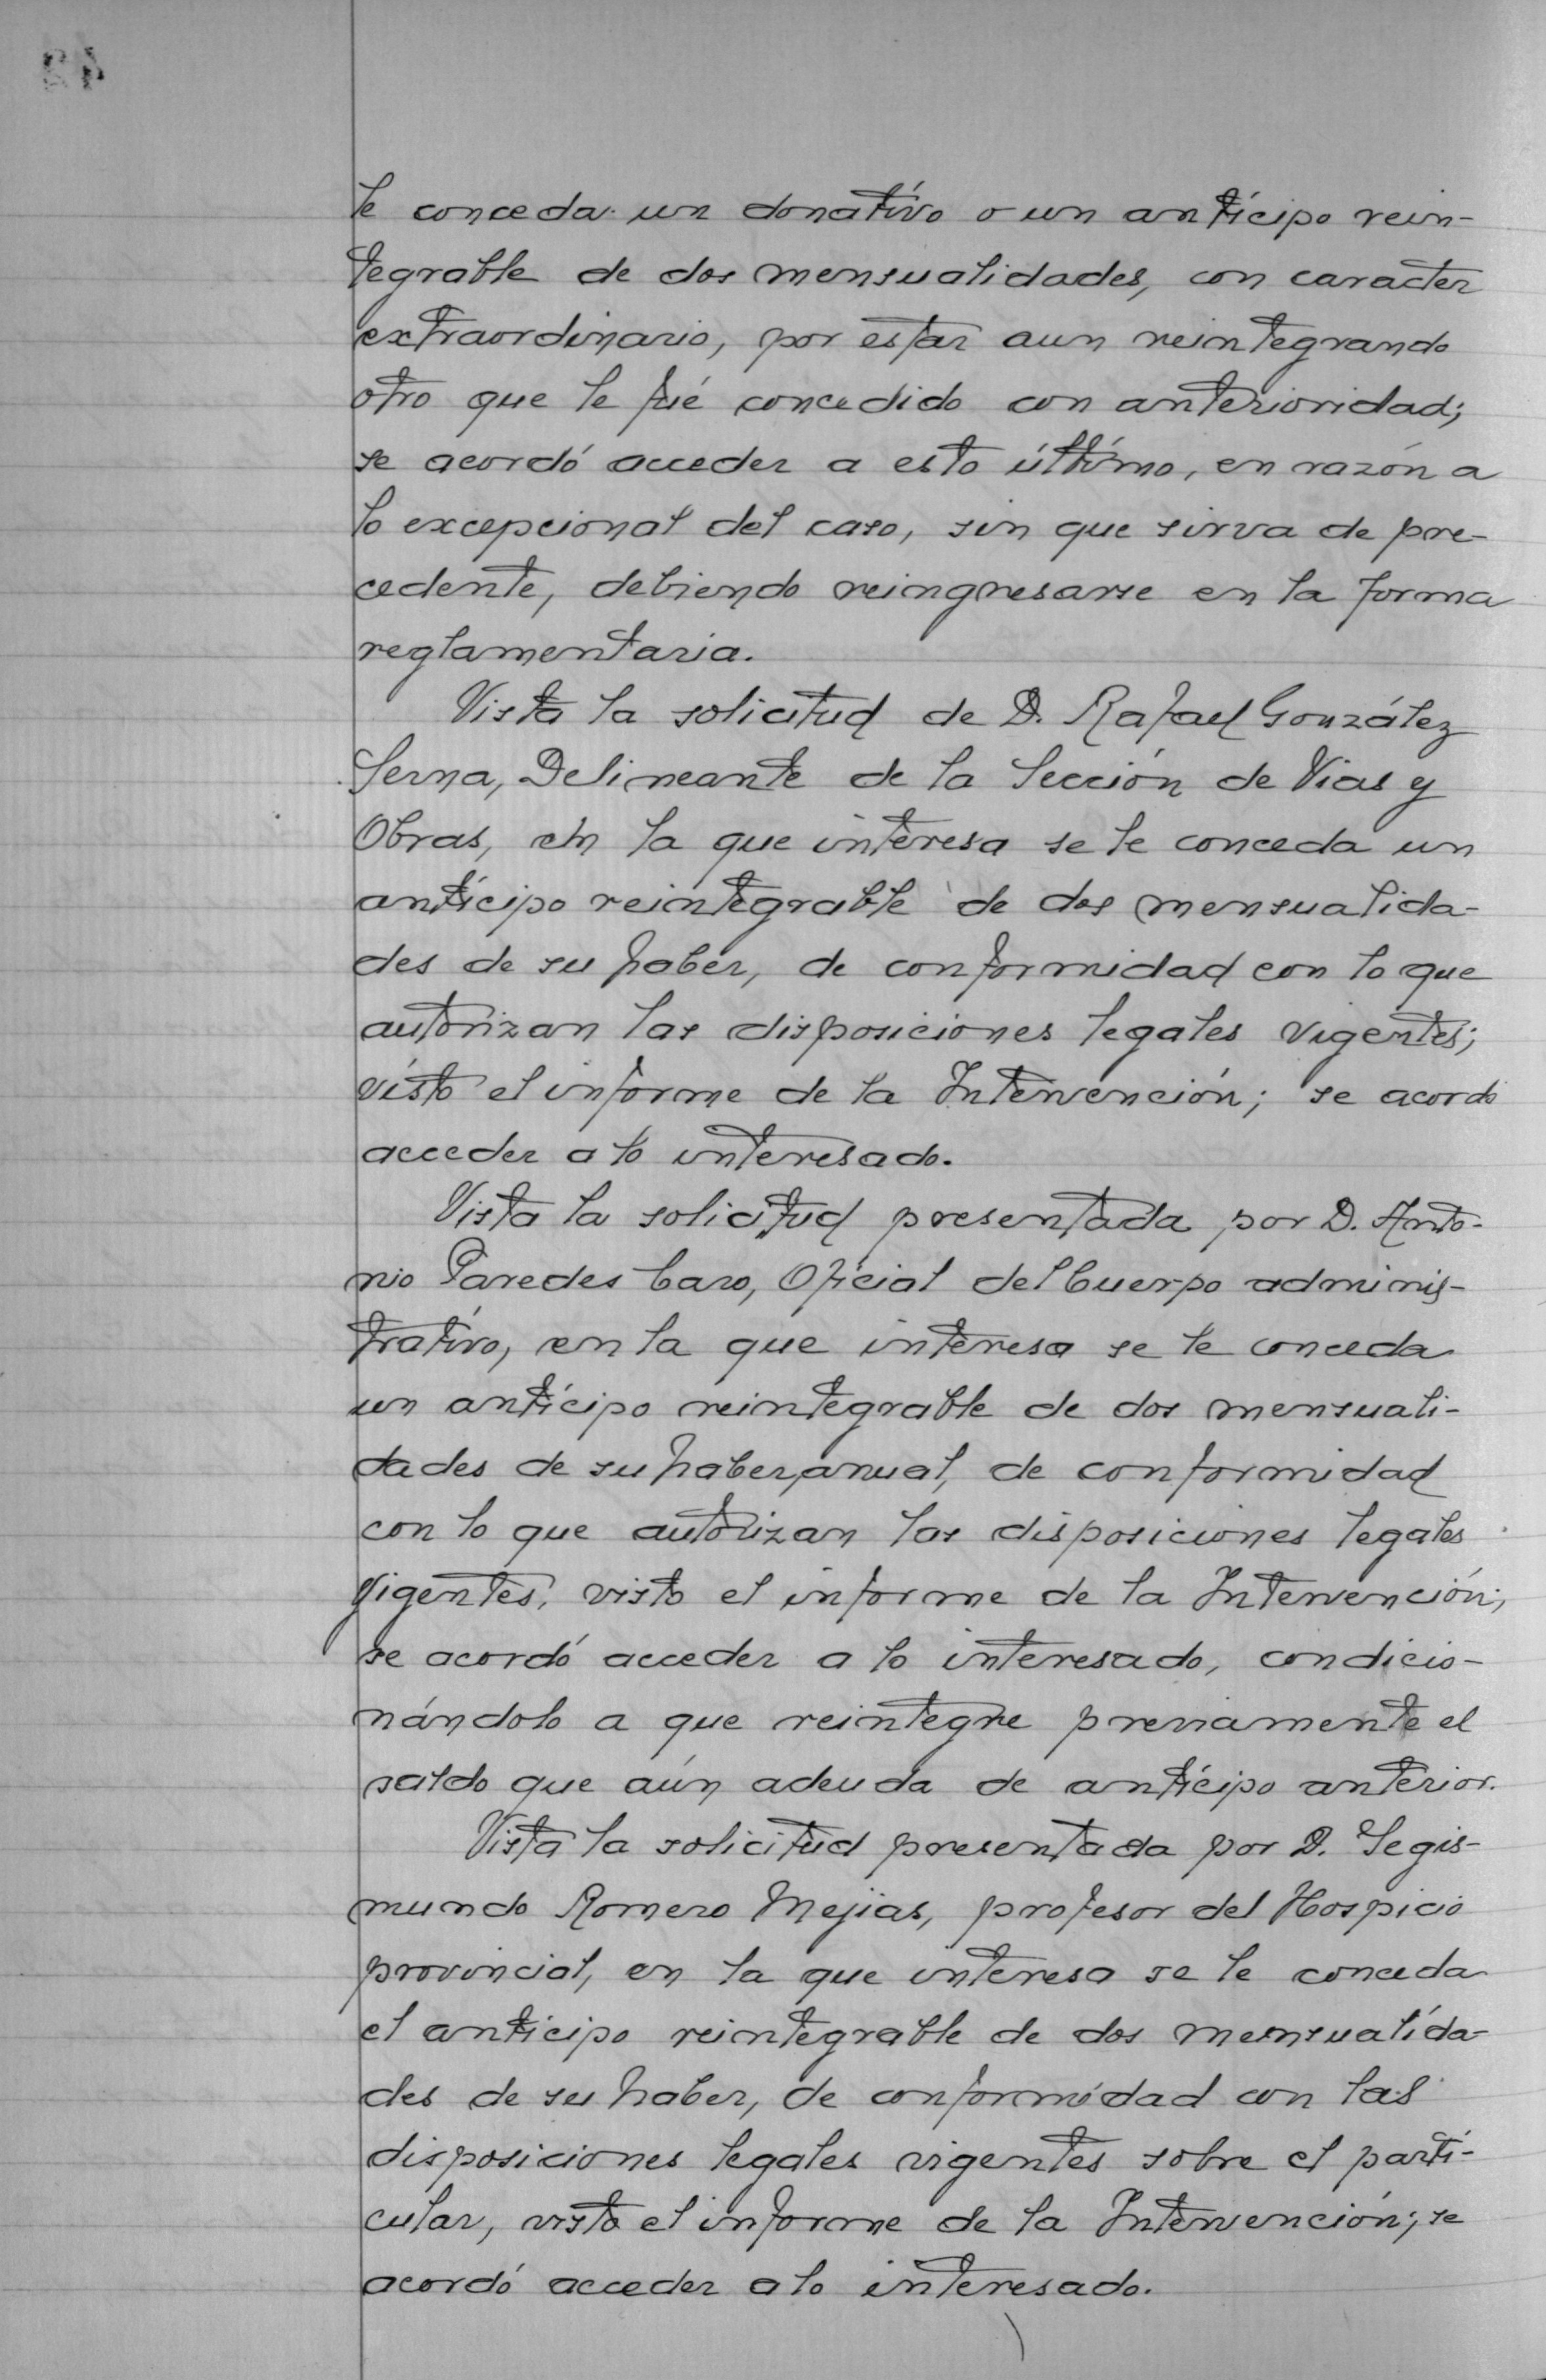 le conceda un donativo o un antícipo rein-
tegrable de dos mensualidades, con caracter
extraordinario, por estar aun reintegrando
otro que le fué concedido con anterioridad;
se acordó acceder a esto último, en razón a
lo excepcional del caso, sin que sirva de pre-
cedente, debiendo reingresarse en la forma
reglamentaria.
Vista la solicitud de D. Rafael González
Serna, Delineante de la Sección de Vias y
Obras, en la que interesa se le conceda un
antícipo reintegrable de dos mensualida-
des de su haber, de conformidad con lo que
autorizan las disposiciones legales vigentes;
visto el informe de la Intervención; se acordó
acceder a lo interesado.
Vista la solicitud presentada por D. Anto-
nio Paredes Caro, Oficial del Cuerpo adminis-
trativo, en la que interesa se le conceda
un antícipo reintegrable de dos mensuali-
dades de su haber anual, de conformidad
con lo que autorizan las disposiciones legales
vigentes, visto el informe de la Intervención;
se acordó acceder a lo interesado, condicio-
nándolo a que reintegre previamente el
saldo que aún adeuda de antícipo anterior.
Vista la solicitud presentada por D. Segis-
mundo Romero Mejias, profesor del Hospicio
provincial, en la que interesa se le conceda
el anticipo reintegrable de dos mensualida-
des de su haber, de conformidad con las
disposiciones legales vigentes sobre el parti-
cular, visto el informe de la Intervención; se
acordó acceder a lo interesado.